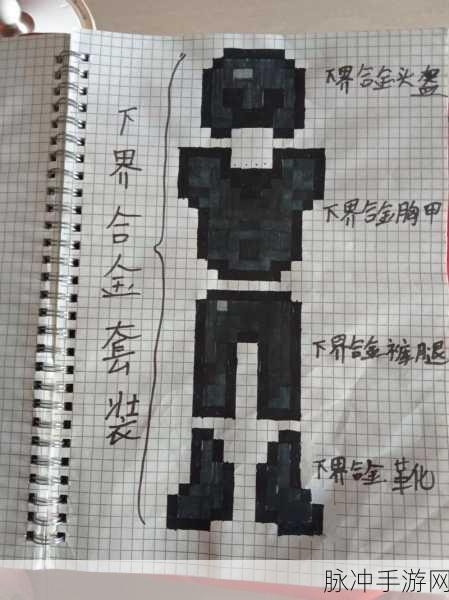 下界合金套装
下界合金头盔
下界合金胸甲
下界合金裤腿
下界合金革化
脉冲手游网